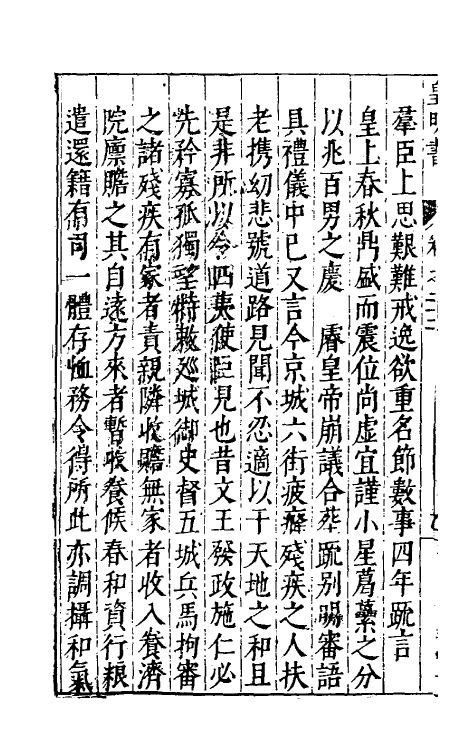 皇明書　卷之二十二
羣臣上思艱難戒逸欲重名節數事四年䟽言
皇上春秋鼎盛而震位尚虚宜謹小星葛藟之分
以兆百男之慶　睿皇帝崩議合葬䟽别嗍審語
具禮儀中已又言今京城六街疲癃殘疾之人扶
老携幼悲號道路見聞不忍適以干天地之和且
是非所以令四夷使臣見也昔文王發政施仁必
先矜寡孤獨望特敕廵城御史督五城兵馬拘審
之諸殘疾有家者責親隣收贍無家者收入養濟
院廪贍之其自遠方來者暫收養候春和資行粮
遣還籍有司一體存恤務令得所此亦調攝和氣